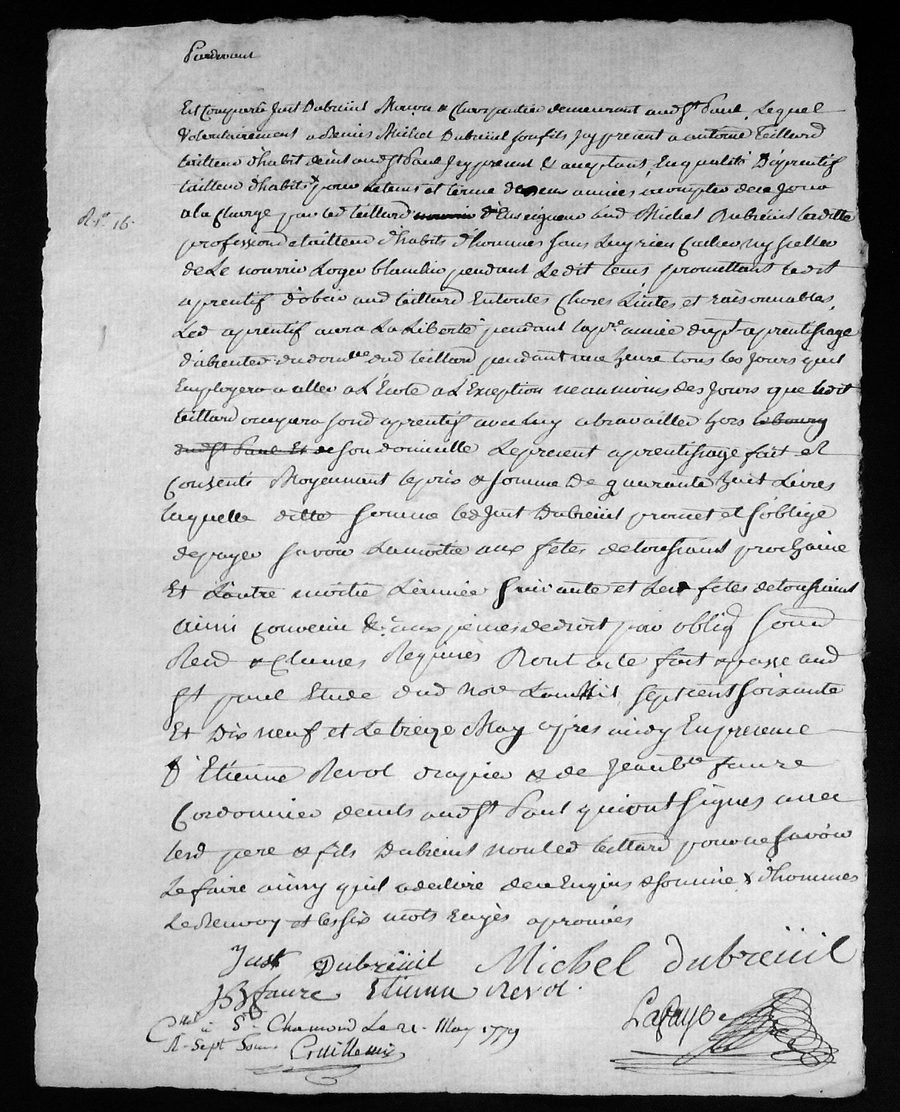 Pardevant
Est Comparû Just Dubreüil Maçon & Charpantier demeurant aud St Paul, Lequel
volontairement a remis Michel Dubreüil son fils Jcy present a antoine teillard
tailleur d'habit deint aud St Paul Jcy present & acceptant, En qualité D'aprentif
tailleur d'habits pour letems et terme de deux années, a compter de ce Jour
R.e 16.
a la Charge par led teillard nourrir d'Enseigner aud Michel Dubreüil laditte
profession de tailleur d'habits d'hommes sans Luy rien Cacher ny sceller
de Le nourrir Loger blanchir pendant Ledit tems promettant ledit
aprentif d'obeir aud teillard En toutes Choses Licites et raisonnables,
Led aprentif aura La Liberté pendant la pre année du pt aprentissage
d'absenter du domlle dud teillard pendant une heure tous les Jours quil
Employera a aller a L'Ecole a L'Exception neanmoins des Jours que ledit
teillard ocupera sond aprentif avec luy a travailler hors le bourg
dud St Paul Et de son domicille Le present aprentissage fait et
Consenti Moyennant le prix & somme De quarante huit Livres
laquelle ditte somme led Just Dubreüil promet et s'oblige
de payer savoir La moitié aux fetes de toussaint prochaine
Et L'autre moitié L'année suivante et Les fetes de toussaint
ainsi Convenu &a aux peines de droit par obliq soumd
Rend & Clauses Requises Dont acte fait & passé aud
St paul Etude dud nore L'an Mil sept cent soixante
Et Dix neuf et Le treize May apres midy En presence
d'Etienne Revol drapier & de Jean bte faure
Cordonnier demts aud St Paul qui ont signés avec
lesd pere & fils Dubreüil non led teillard pour ne savoir
Le faire ainsy qu'il a declaré de ce Enquis & sommé & d'hommes
Le Renvoy et les six mots rayés aprouvés
Just Dubreüil Michel dubreüil
JB faure Etienne Revol.
Lafayë
Cnlé à St Chamond Le 21. May 1779
R. Sept Sous